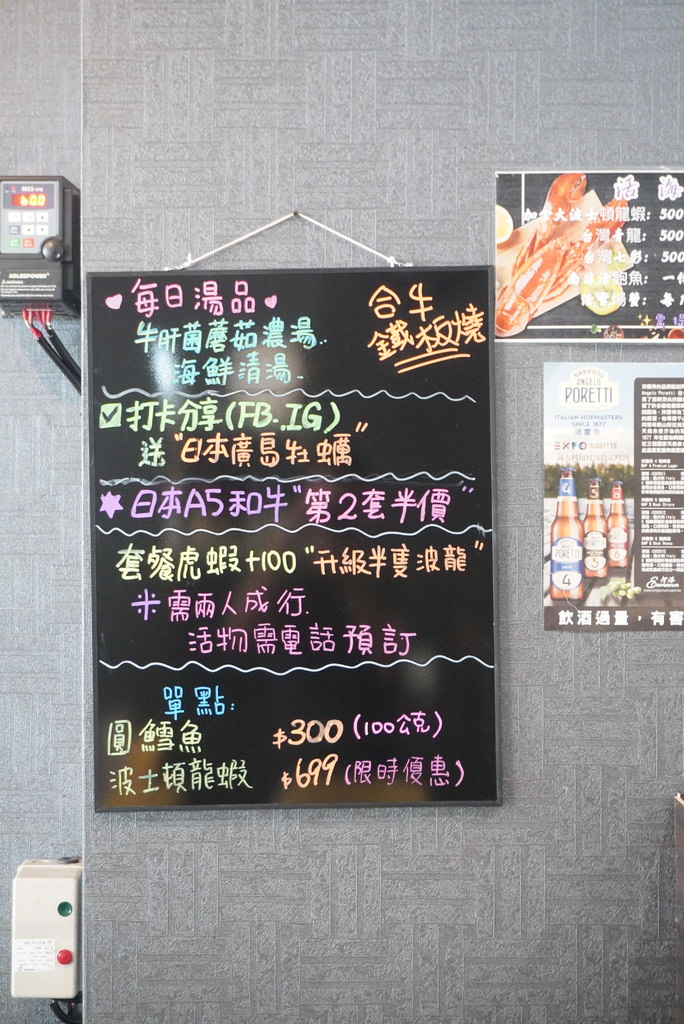 60.0
ADLEEPOWER
WARNING
每日湯品
合牛
鐵板燒
牛肝菌蘑菇濃湯..
海鮮清湯.
打卡分享(FB.IG)
送"日本廣島牡蠣"
日本A5和牛"第2套半價"
套餐虎蝦+100"升級半隻波龍"
米需兩人成行.
活物需電話預訂
單點:
圓鱈魚 $300(100公克)
波士頓龍蝦 $699(限時優惠)
活海
加拿大波士頓龍蝦: 500
台灣青龍: 500
台灣七彩: 500
南非活鮑魚: 一
ANGELO
PORETTI
ITALIAN HOPMASTERS
SINCE 1877
4
5
6
PORETTI
4
飲酒過量，有害